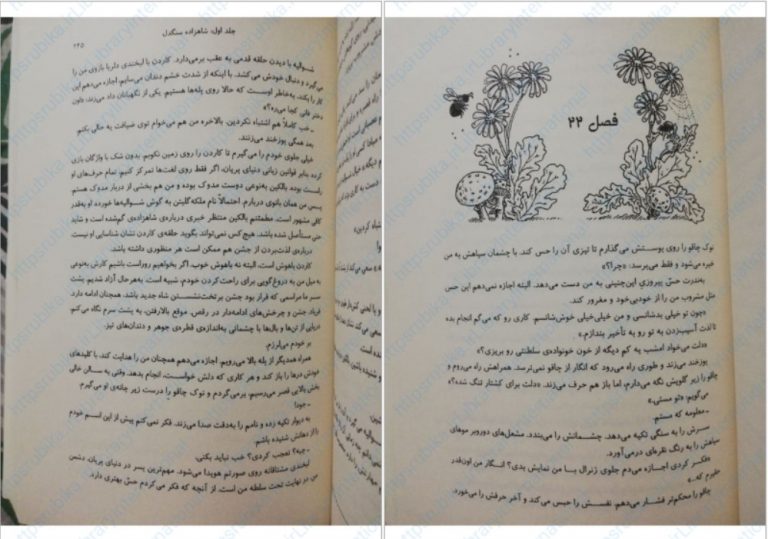 جلد اول: شاهزاده سنگدل
۲۴۵
شوالیه با دیدن حلقه قدمی به عقب برمی‌دارد. کاردن با لبخندی دلربا بازوی من را
می‌گیرد و دنبال خودش می‌کشد. با اینکه از شدت خشم دندان می‌سایم، اجازه می‌دهم این
کار را بکند. به‌خاطر اوست که حالا روی پله‌ها هستیم. یکی از نگهبانان داد می‌زند: «اون
دختر فانی کجا می‌ره؟»
ـ خب کاملاً هم اشتباه نکردین. بالاخره من هم می‌خوام توی ضیافت یه حالی بکنم.
بعد همگی پوزخند می‌زنند.
خیلی جلوی خودم را می‌گیرم تا کاردن را روی زمین نکوبم. بدون شک با واژگان بازی
کرده بنابر قوانین زبانی دنیای پریان، اگر فقط روی لغت‌ها تمرکز کنیم، تمام حرف‌های او
راست بودند. بالکین به‌نوعی دوست مدوک بوده و من هم بخشی از دربار مدوک هستم.
پس من همان بانوی دربارم. احتمالاً نام ملکه گلیتن به گوش شوالیه‌ها خورده. او به‌قدر
کافی مشهور است. مطمئنم بالکین منتظر خبری درباره‌ی شاهزاده‌ی گم‌شده است و شاید
حتی مستأصل شده باشد. هیچ‌کس نمی‌تواند بگوید حلقه‌ی کاردن نشان شناسایی او نیست.
درباره‌ی لذت‌بردن از جشن هم ممکن است هر منظوری داشته باشد.
کاردن باهوش است، البته نه باهوش خوب. اگر بخواهیم روراست باشیم کارش به‌نوعی
به میل من به دروغ‌گویی برای راحت‌کردن خودم، شبیه است. به‌هرحال آزاد شدیم. پشت
سر ما مراسمی که قرار بود جشن برتخت‌نشستن شاه جدید باشد، همچنان ادامه دارد.
فریاد جشن و چرخش‌های ادامه‌دار در رقص. موقع بالارفتن، به پشت سرم نگاه می‌کنم.
دریایی از تن‌ها و بال‌ها با چشمانی به‌اندازه‌ی قطره‌ی جوهر و دندان‌های تیز.
بر خودم می‌لرزم.
همراه همدیگر از پله بالا می‌رویم. اجازه می‌دهم همچنان من را هدایت کند، با کلیدهای
خودش درها را باز کند و هر کاری که دلش خواست، انجام بدهد. وقتی به سالن خالی
بخش بالایی قصر می‌رسیم، برمی‌گردم و نوک چاقو را درست زیر چانه‌ی او می‌گیرم.
ـ جود!
به دیوار تکیه زده و نامم را به‌دقت صدا می‌زند. فکر نمی‌کنم پیش از این اسم خودم
را از دهانش شنیده باشم.
ـ چیه؟ تعجب کردی؟ خب نباید بکنی.
لبخندی مشتاقانه روی صورتم هویدا می‌شود. مهم‌ترین پسر در دنیای پریان، دشمن
من در نهایت تحت سلطه من است. از آنچه که فکر می‌کردم حسّ بهتری دارد.
فصل ۲۲
نوک چاقو را روی پوستش می‌گذارم تا تیزی آن را حس کند. با چشمان سیاهش به من
خیره می‌شود و فقط می‌پرسد. «چرا؟»
به‌ندرت حسّ پیروزی این‌چنینی به من دست می‌دهد. البته اجازه نمی‌دهم این حس
مثل مشروب من را از خودبی‌خود و مغرور کند.
«چون تو خیلی بدشانسی و من خیلی‌خیلی خوش‌شانسم. کاری رو که می‌گم انجام بده
تا لذت آسیب‌زدن به تو رو به تأخیر بندازم.»
«دلت می‌خواد امشب یه کم دیگه از خون خونواده‌ی سلطنتی رو بریزی؟»
پوزخند می‌زند و طوری راه می‌رود که انگار از چاقو نمی‌ترسد. همراهش راه می‌روم و
چاقو را زیر گلویش نگه می‌دارم، اما باز هم حرف می‌زند. «دلت برای کشتار تنگ شده؟»
می‌گویم: «تو مستی.»
ـ معلومه که مستم.
سرش را به سنگی تکیه می‌دهد. چشمانش را می‌بندد. مشعل‌های دوروبر موهای
سیاهش را به رنگ نقره‌ای درمی‌آورد.
«فکر کردی اجازه می‌دم جلوی ژنرال با من نمایش بدی؟ انگار من اون‌قدر
حقیرم که...»
چاقو را محکم‌تر فشار می‌دهم. نفسش را حبس می‌کند و آخر حرفش را می‌خورد.